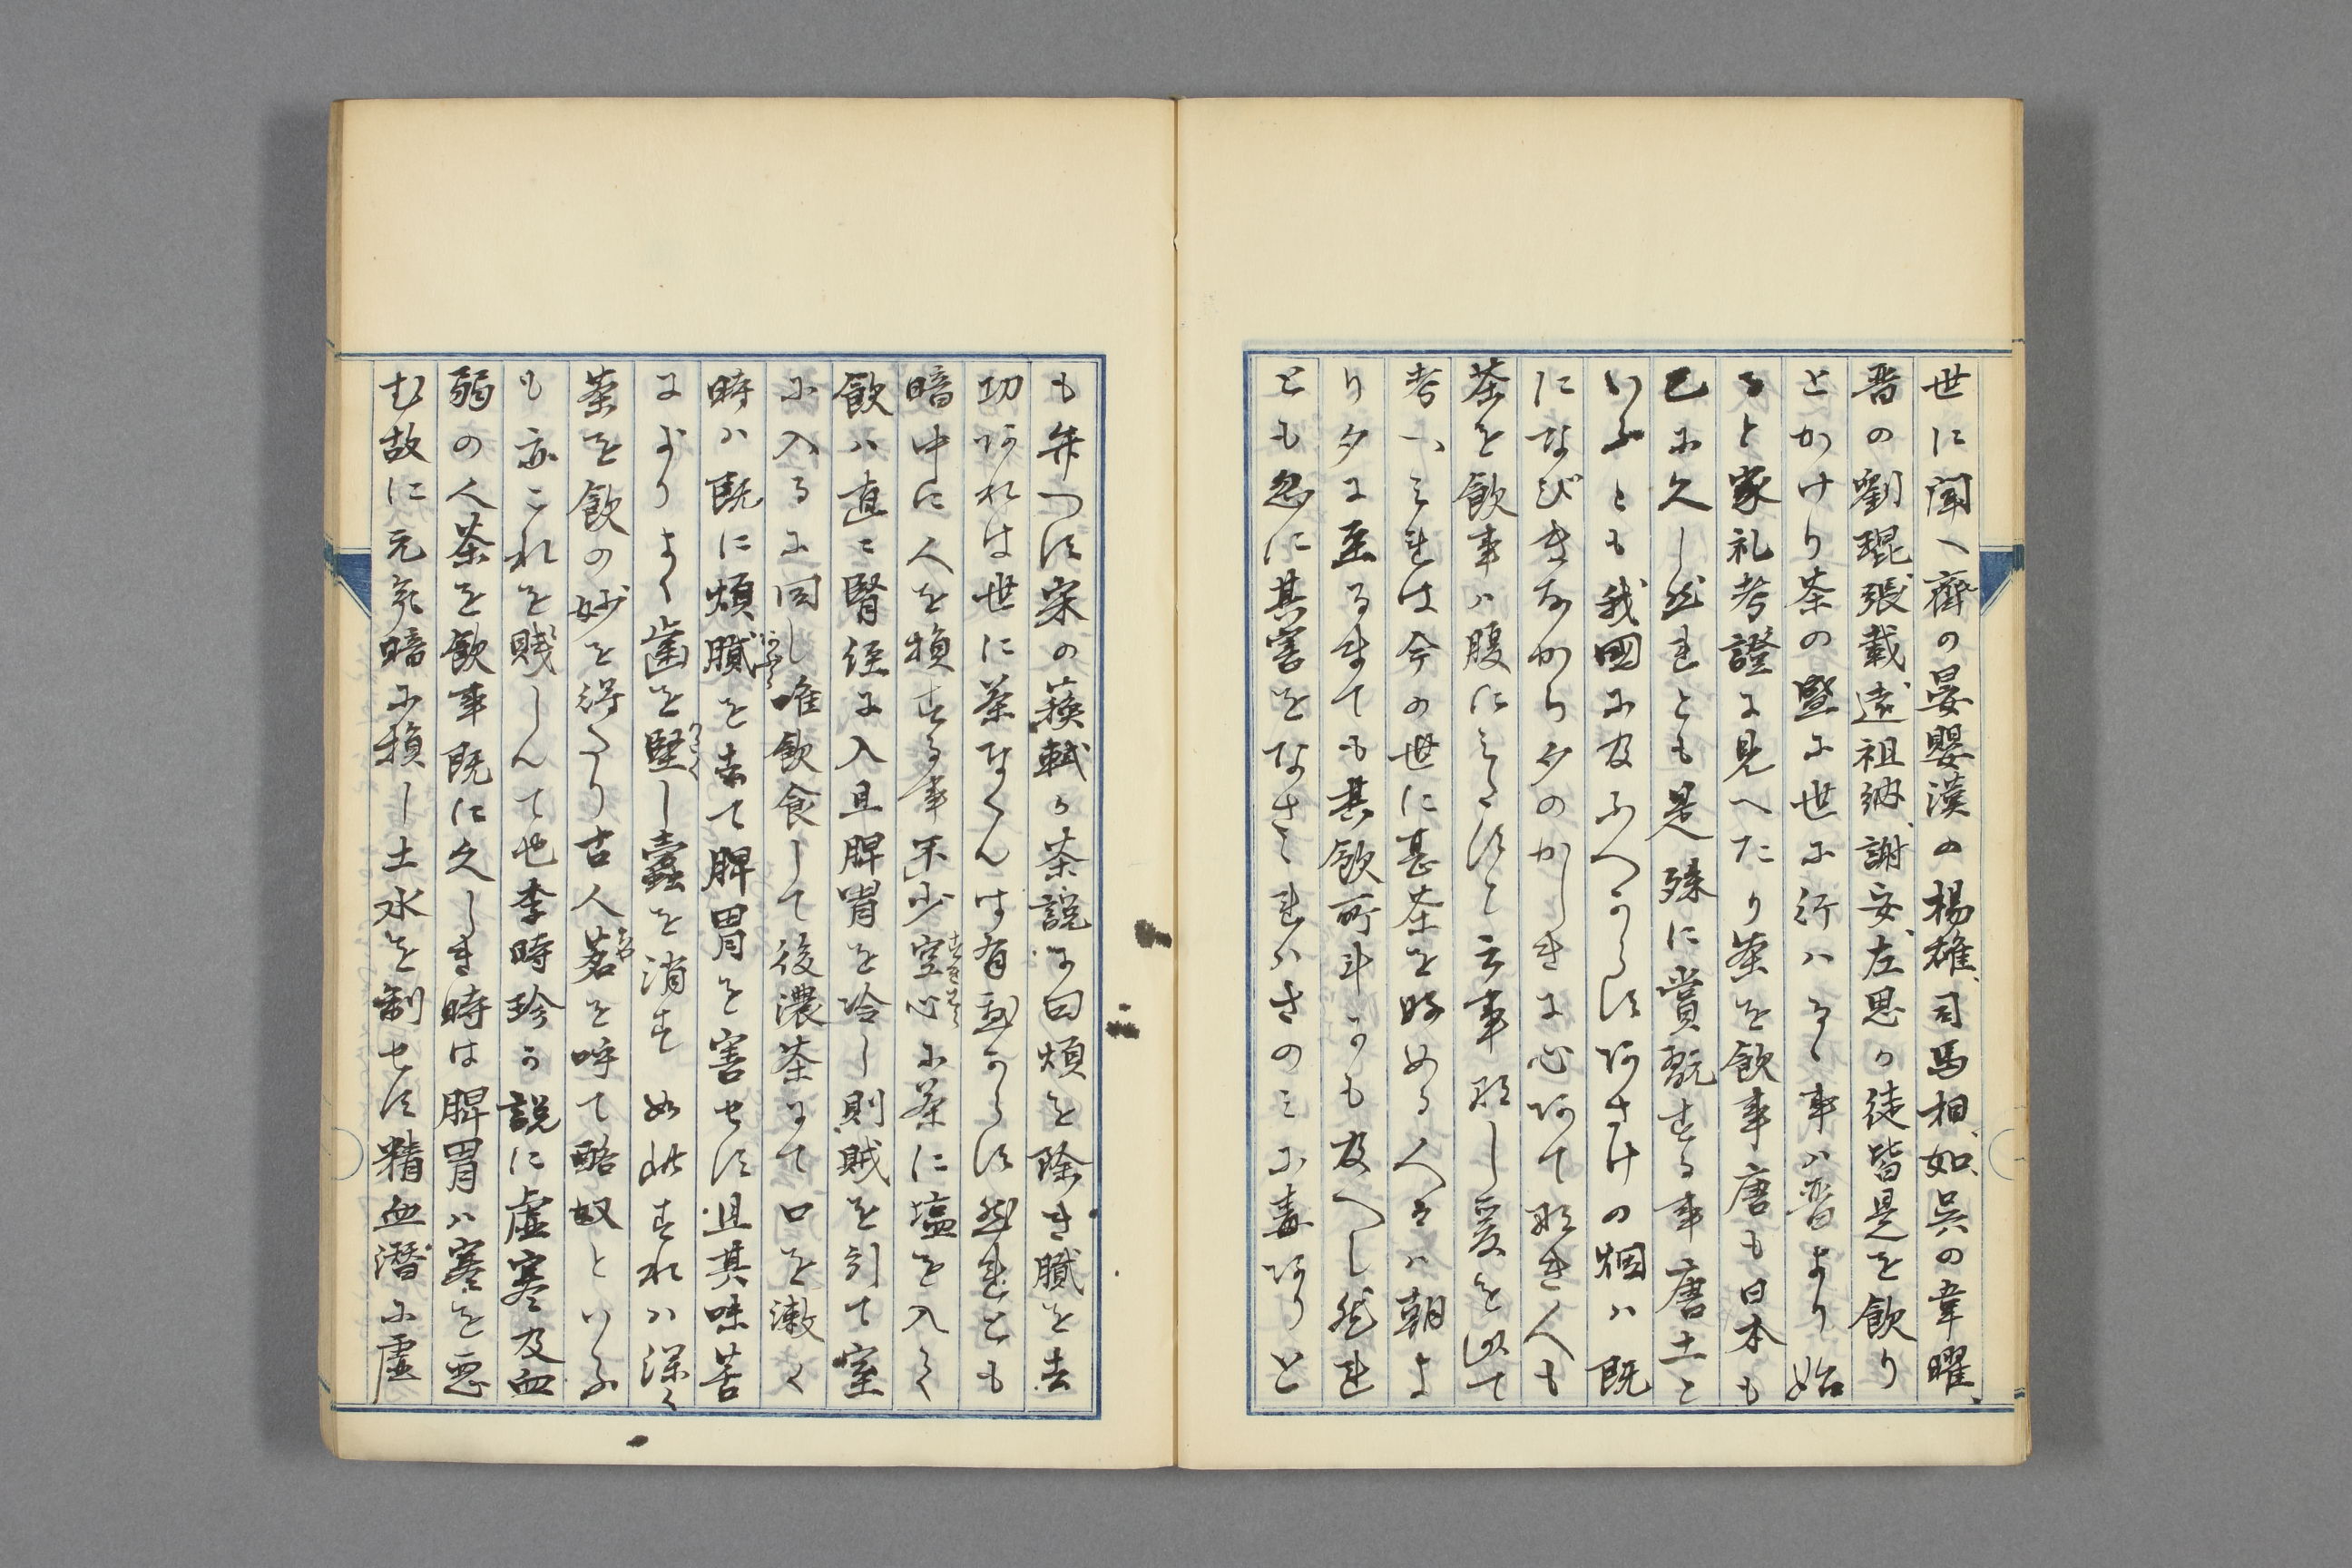 世に聞へ齊の晏嬰漢の楊雄、司馬相如、呉の韋曜、
晋の劉琨張載遠祖納、謝安、左思か徒皆是を飲り
とかけり茶の盬に世に行ハるゝ事ハ晋より始
ると家礼考證に見へたり茶を飲事唐も日本も
已に久し然れとも是殊に賞翫する事唐土と
いふとも我國に及ふへからすあさけの烟ハ既
になびきなから夕のかしきに心あて那き人も
茶を飲事ハ腹にみたすと云事那し爰を以て
考へみれは今の世に甚茶を好める人々ハ朝よ
り夕に至るまても其飲所斗かも及へし然れ
とも忽に其害をなさゝれハさのミに毒ありと
も弁つす宋の蘓軾か茶説に曰煩を除き膩を去
功あれは世に茶なくんは有へからす然れとも
暗中に人を損する事不少空心に茶に塩を入て
飲ハ直に腎経に入且脾胃を冷し則賊を引て室
に入るに同し唯飲食して後濃茶にて口を漱く
時ハ既に煩膩を去て脾胃を害せす且其味苦
によりよく歯を堅し蠧を消す如此すれハ深く
茶を飲の妙を得たり古人茗を呼て酪奴といふ
も亦これを賎しんて也李時珍か説に虚寒及血
弱の人茶を飲事既に久しき時は脾胃ハ寒を悪
む故に元氣暗に損し土水を制せす精血潜に虚